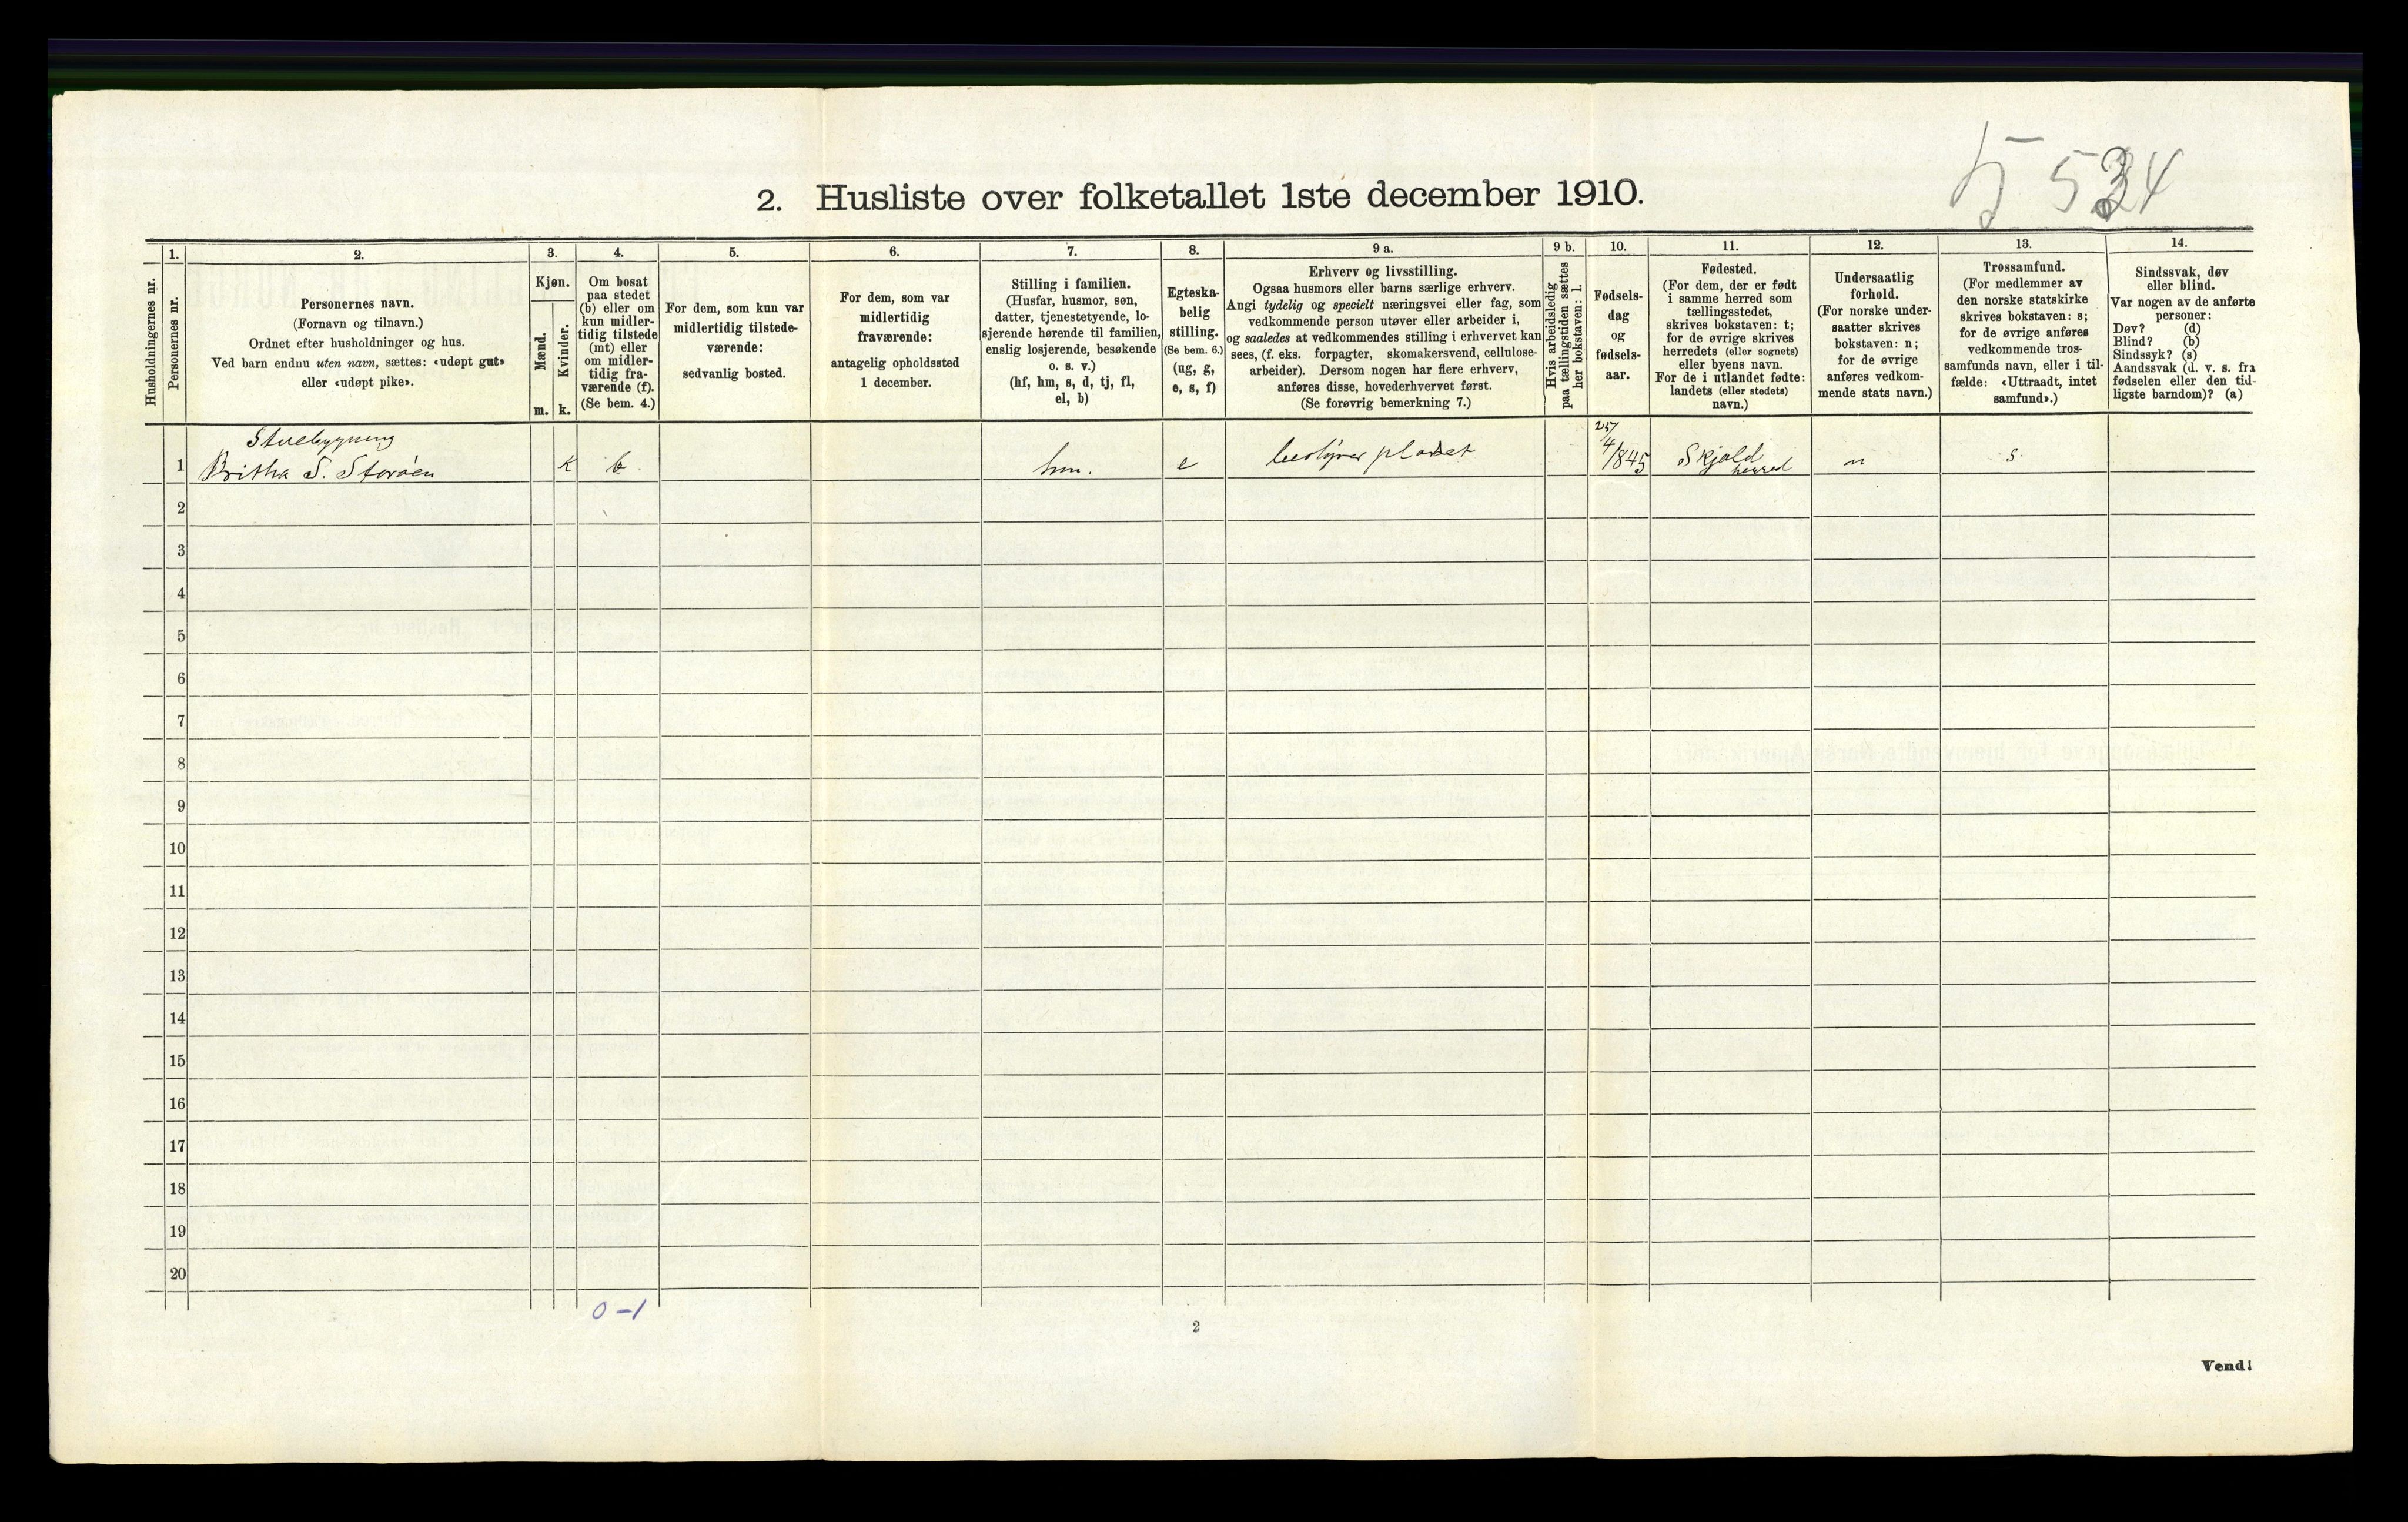 5 534
2. Husliste over folketallet 1ste december 1910.
Husholdningernes nr.
1.
Personernes nr.
2.
Personernes navn.
(Fornavn og tilnavn.)
Ordnet efter husholdninger og hus.
Ved barn endnu uten navn, sættes: «udøpt gut»
eller «udøpt pike».
3.
Kjøn.
Mænd.
Kvinder.
m. k.
4.
Om bosat
paa stedet
(b) eller om
kun midler-
tidig tilstede
(mt) eller
om midler-
tidig fra-
værende (f).
(Se bem. 4.)
5.
For dem, som kun var
midlertidig tilstede-
værende:
sedvanlig bosted.
6.
For dem, som var
midlertidig
fraværende:
antagelig opholdssted
1 december.
7.
Stilling i familien.
(Husfar, husmor, søn,
datter, tjenestetyende, lo-
sjerende hørende til familien,
enslig losjerende, besøkende
o. s. v.)
(hf, hm, s, d, tj, fl,
el, b)
8.
Egteska-
belig
stilling.
(Se bem. 6.)
(ug, g,
e, s, f)
9 a.
Erhverv og livsstilling.
Ogsaa husmors eller barns særlige erhverv.
Angi tydelig og specielt næringsvei eller fag, som
vedkommende person utøver eller arbeider i,
og saaledes at vedkommendes stilling i erhvervet kan
sees, (f. eks. forpagter, skomakersvend, cellulose-
arbeider). Dersom nogen har flere erhverv,
anføres disse, hovederhvervet først.
(Se forøvrig bemerkning 7.)
9 b.
Hvis arbeidsledig
paa tællingstiden sættes
her bokstaven: l.
10.
Fødsels-
dag
og
fødsels-
aar.
11.
Fødested.
(For dem, der er født
i samme herred som
tællingsstedet,
skrives bokstaven: t;
for de øvrige skrives
herredets (eller sognets)
eller byens navn.
For de i utlandet fødte:
landets (eller stedets)
navn.)
12.
Undersaatlig
forhold.
(For norske under-
saatter skrives
bokstaven: n;
for de øvrige
anføres vedkom-
mende stats navn.)
13.
Trossamfund.
(For medlemmer av
den norske statskirke
skrives bokstaven: s;
for de øvrige anføres
vedkommende tros-
samfunds navn, eller i til-
fælde: «Uttraadt, intet
samfund».)
14.
Sindssvak, døv
eller blind.
Var nogen av de anførte
personer:
Døv? (d)
Blind? (b)
Sindssyk? (s)
Aandssvak (d. v. s. fra
fødselen eller den tid-
ligste barndom)? (a)
Stuebygning
1 Britha S. Storöen k b hm. e bestyrer pladset 25/4/845 Skjold herred n s.
2
3
4
5
6
7
8
9
10
11
12
13
14
15
16
17
18
19
20
0 - 1
2
Vend!